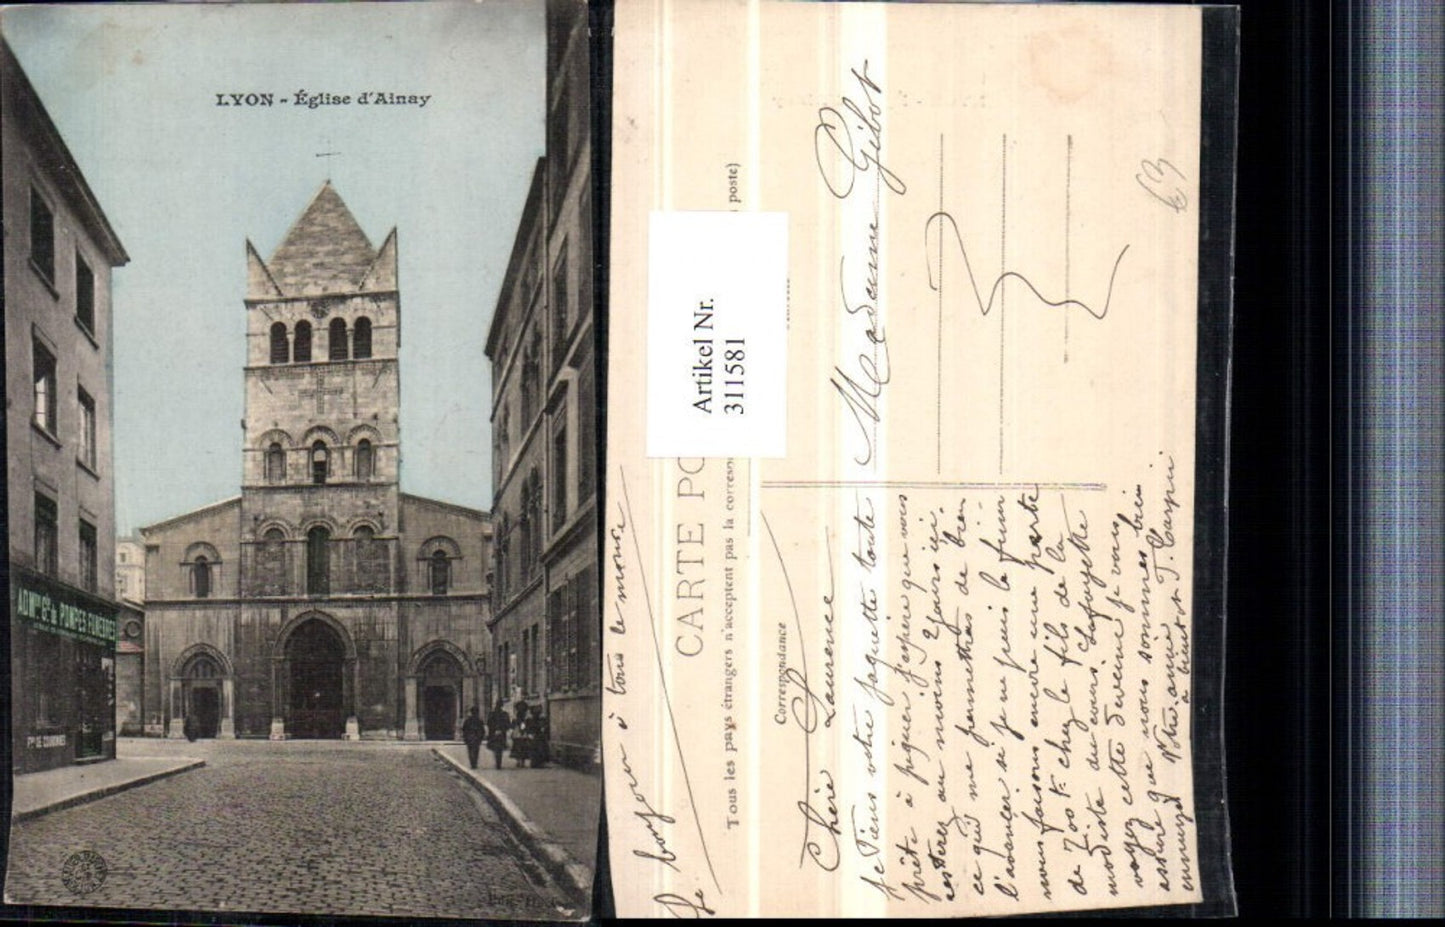 LYON - Église d'Ainay
ADMon Gle de POMPES FUNEBRES
Fque DE COURONNES
Artikel Nr.
311581
CARTE PO
Tous les pays étrangers n'acceptent pas la corresp
poste)
Correspondance
Madame Gibot
63
Le bonjour à tous le monde
Chère Laurence
Je tiens votre jaquette toute
prête à piquer j'espère que vous
resterez au moins 2 jours ici.
ce qui me permettras de bien
l'avancer si je ne puis la finir
nous faisons encore une perte
de 700 f. chez le fils de la
modiste du cours Lafayette
voyez cette deveine je vous
assure que nous sommes bien
ennuyé Votre amie
à bientôt